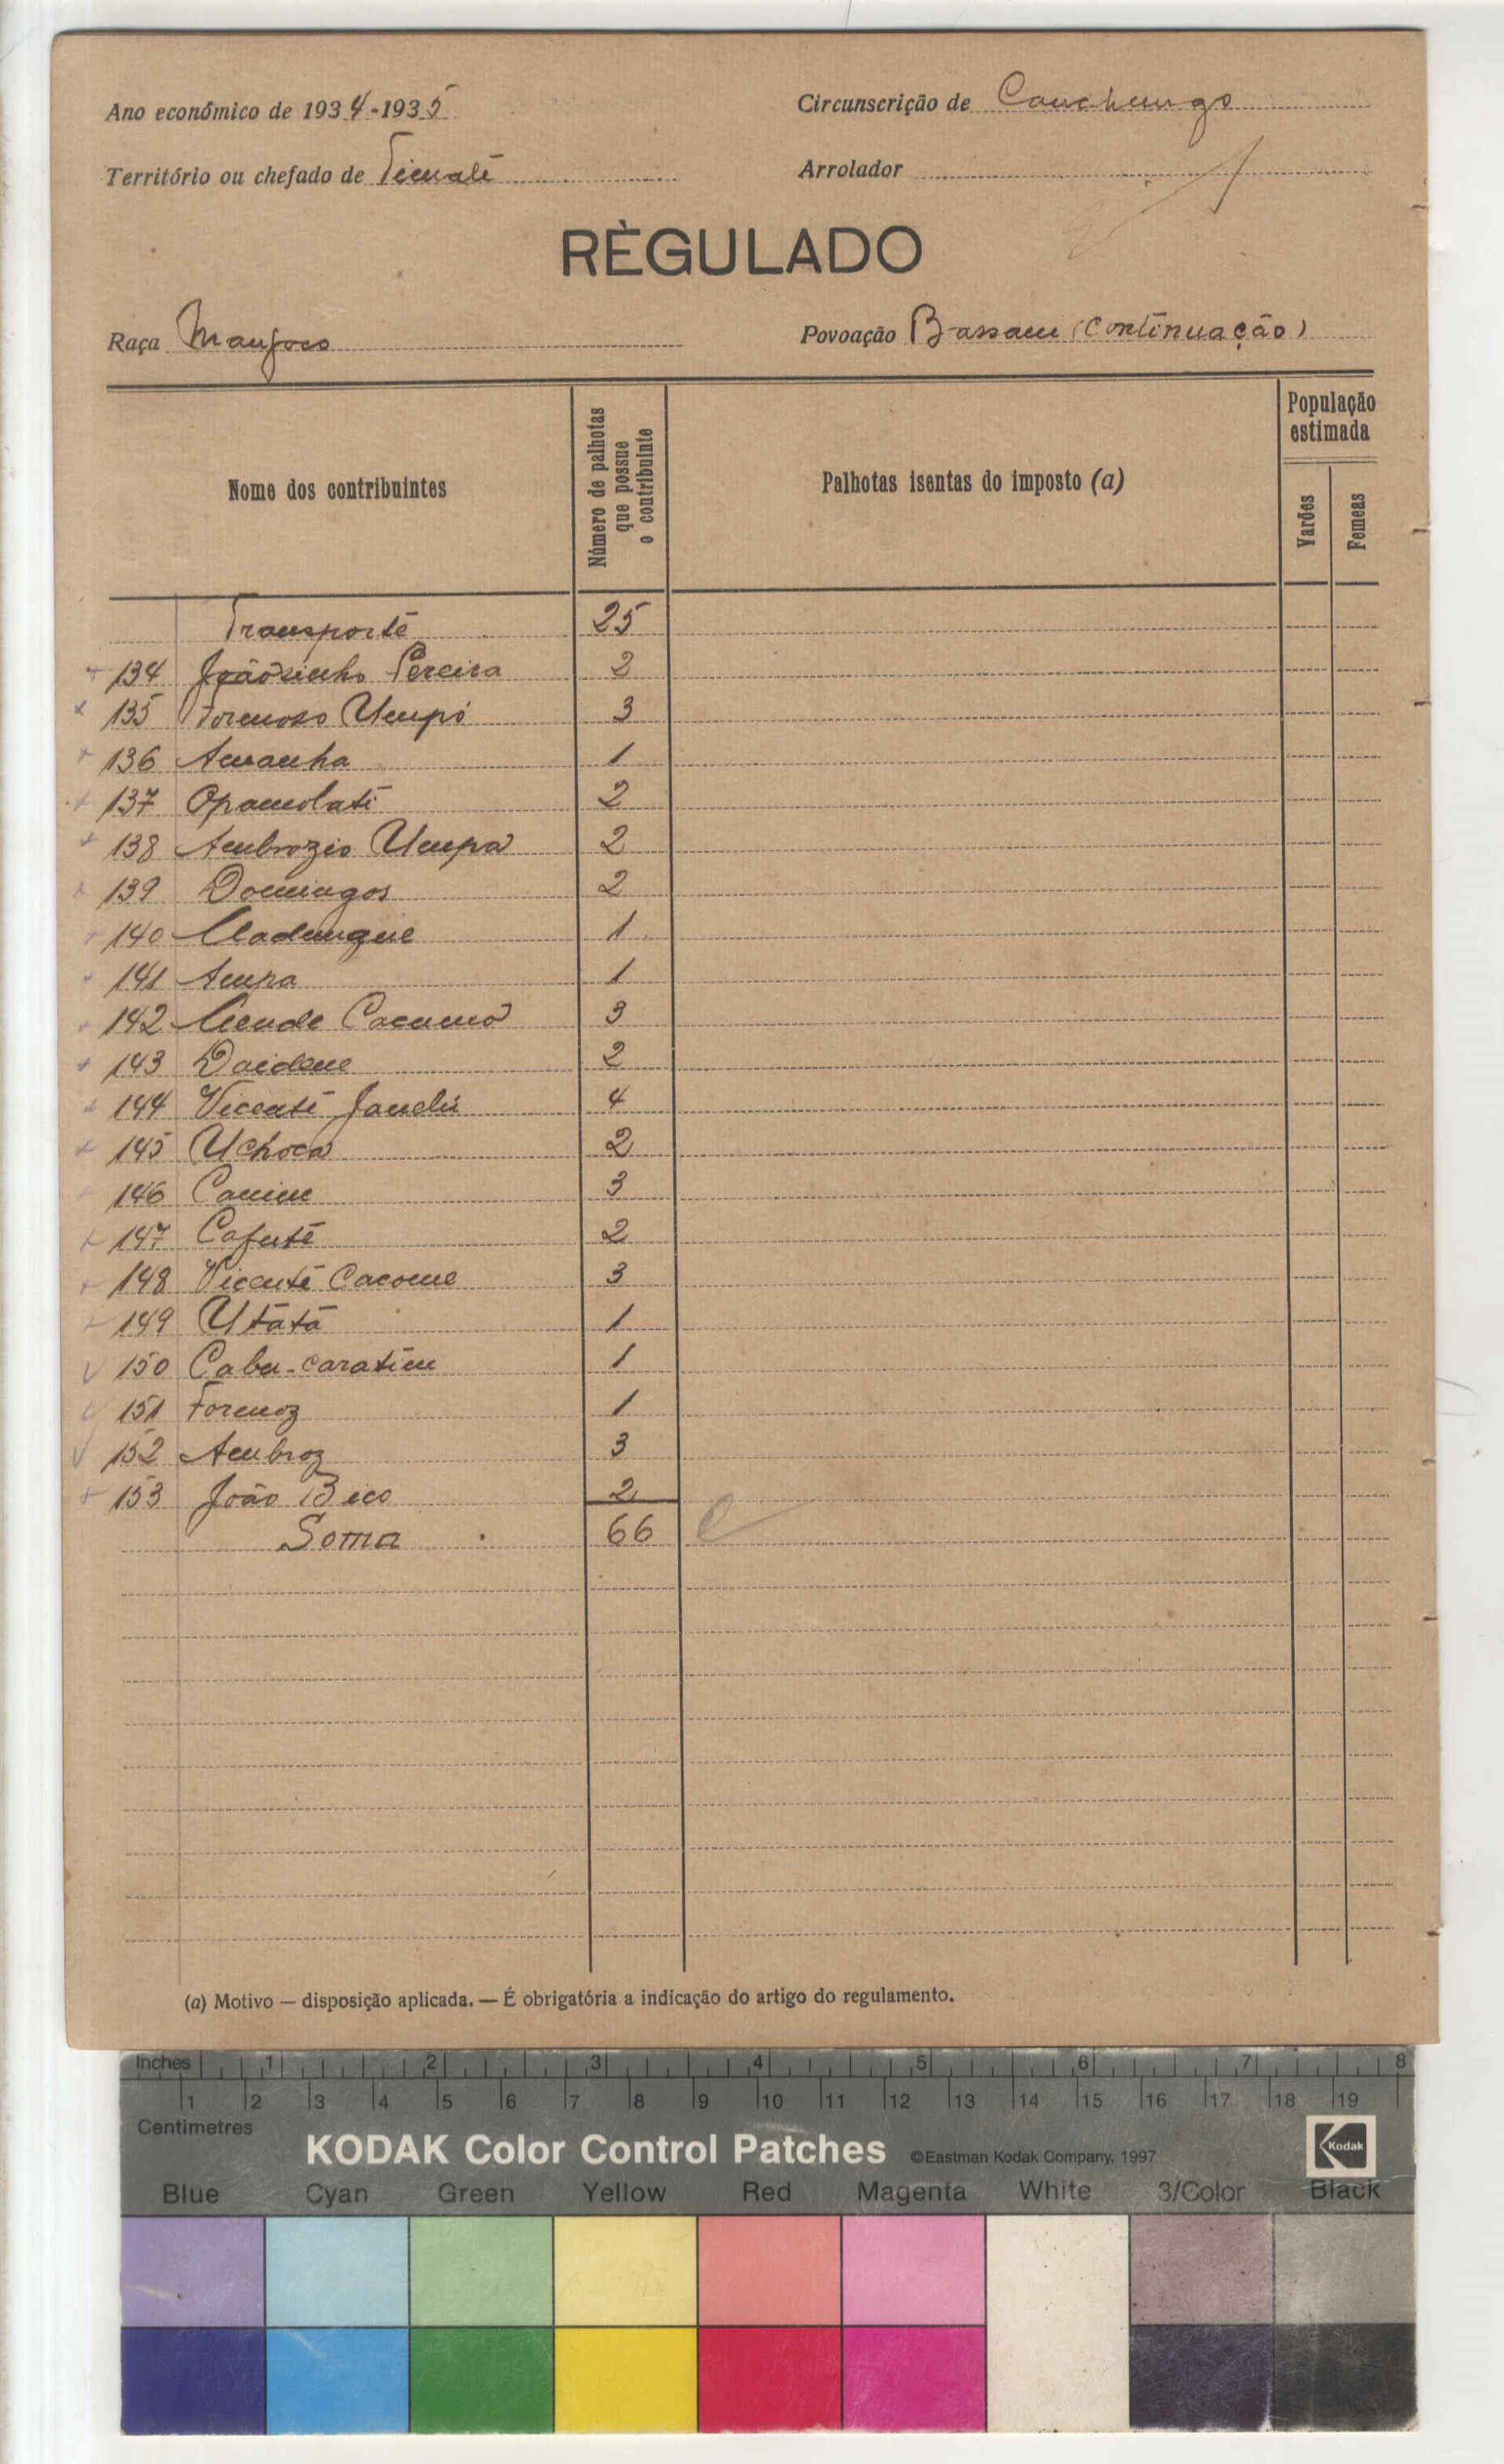 Ano económico de 1934-1935
Circunscrição de Canchungo
Território ou chefado de
Arrolador
RÈGULADO
Raça Manjoco
Povoação Bassam (Continuação)
Nome dos contribuintes
Número de palhotas que possue o contribuinte
Palhotas isentas do imposto (a)
População estimada
Varões
Femeas
Transporte 25
134 Joãosinho Pereira 2
135 Formoso Umpó 3
136 Amanha 1
137 2
138 Ambrozio Umpa 2
139 Domingos 2
140 1
141 Ampa 1
142 3
143 2
144 Vicente 4
145 Uchoca 2
146 3
147 Cafuté 2
148 Vicente Cacome 3
149 Utátá 1
150 1
151 Formoz 1
152 Ambroz 3
153 João Bico 2
Soma 66
(a) Motivo — disposição aplicada. — É obrigatória a indicação do artigo do regulamento.
Inches 1 2 3 4 5 6 7 8
1 2 3 4 5 6 7 8 9 10 11 12 13 14 15 16 17 18 19
Centimetres
KODAK Color Control Patches ©Eastman Kodak Company, 1997 Kodak
Blue Cyan Green Yellow Red Magenta White 3/Color Black